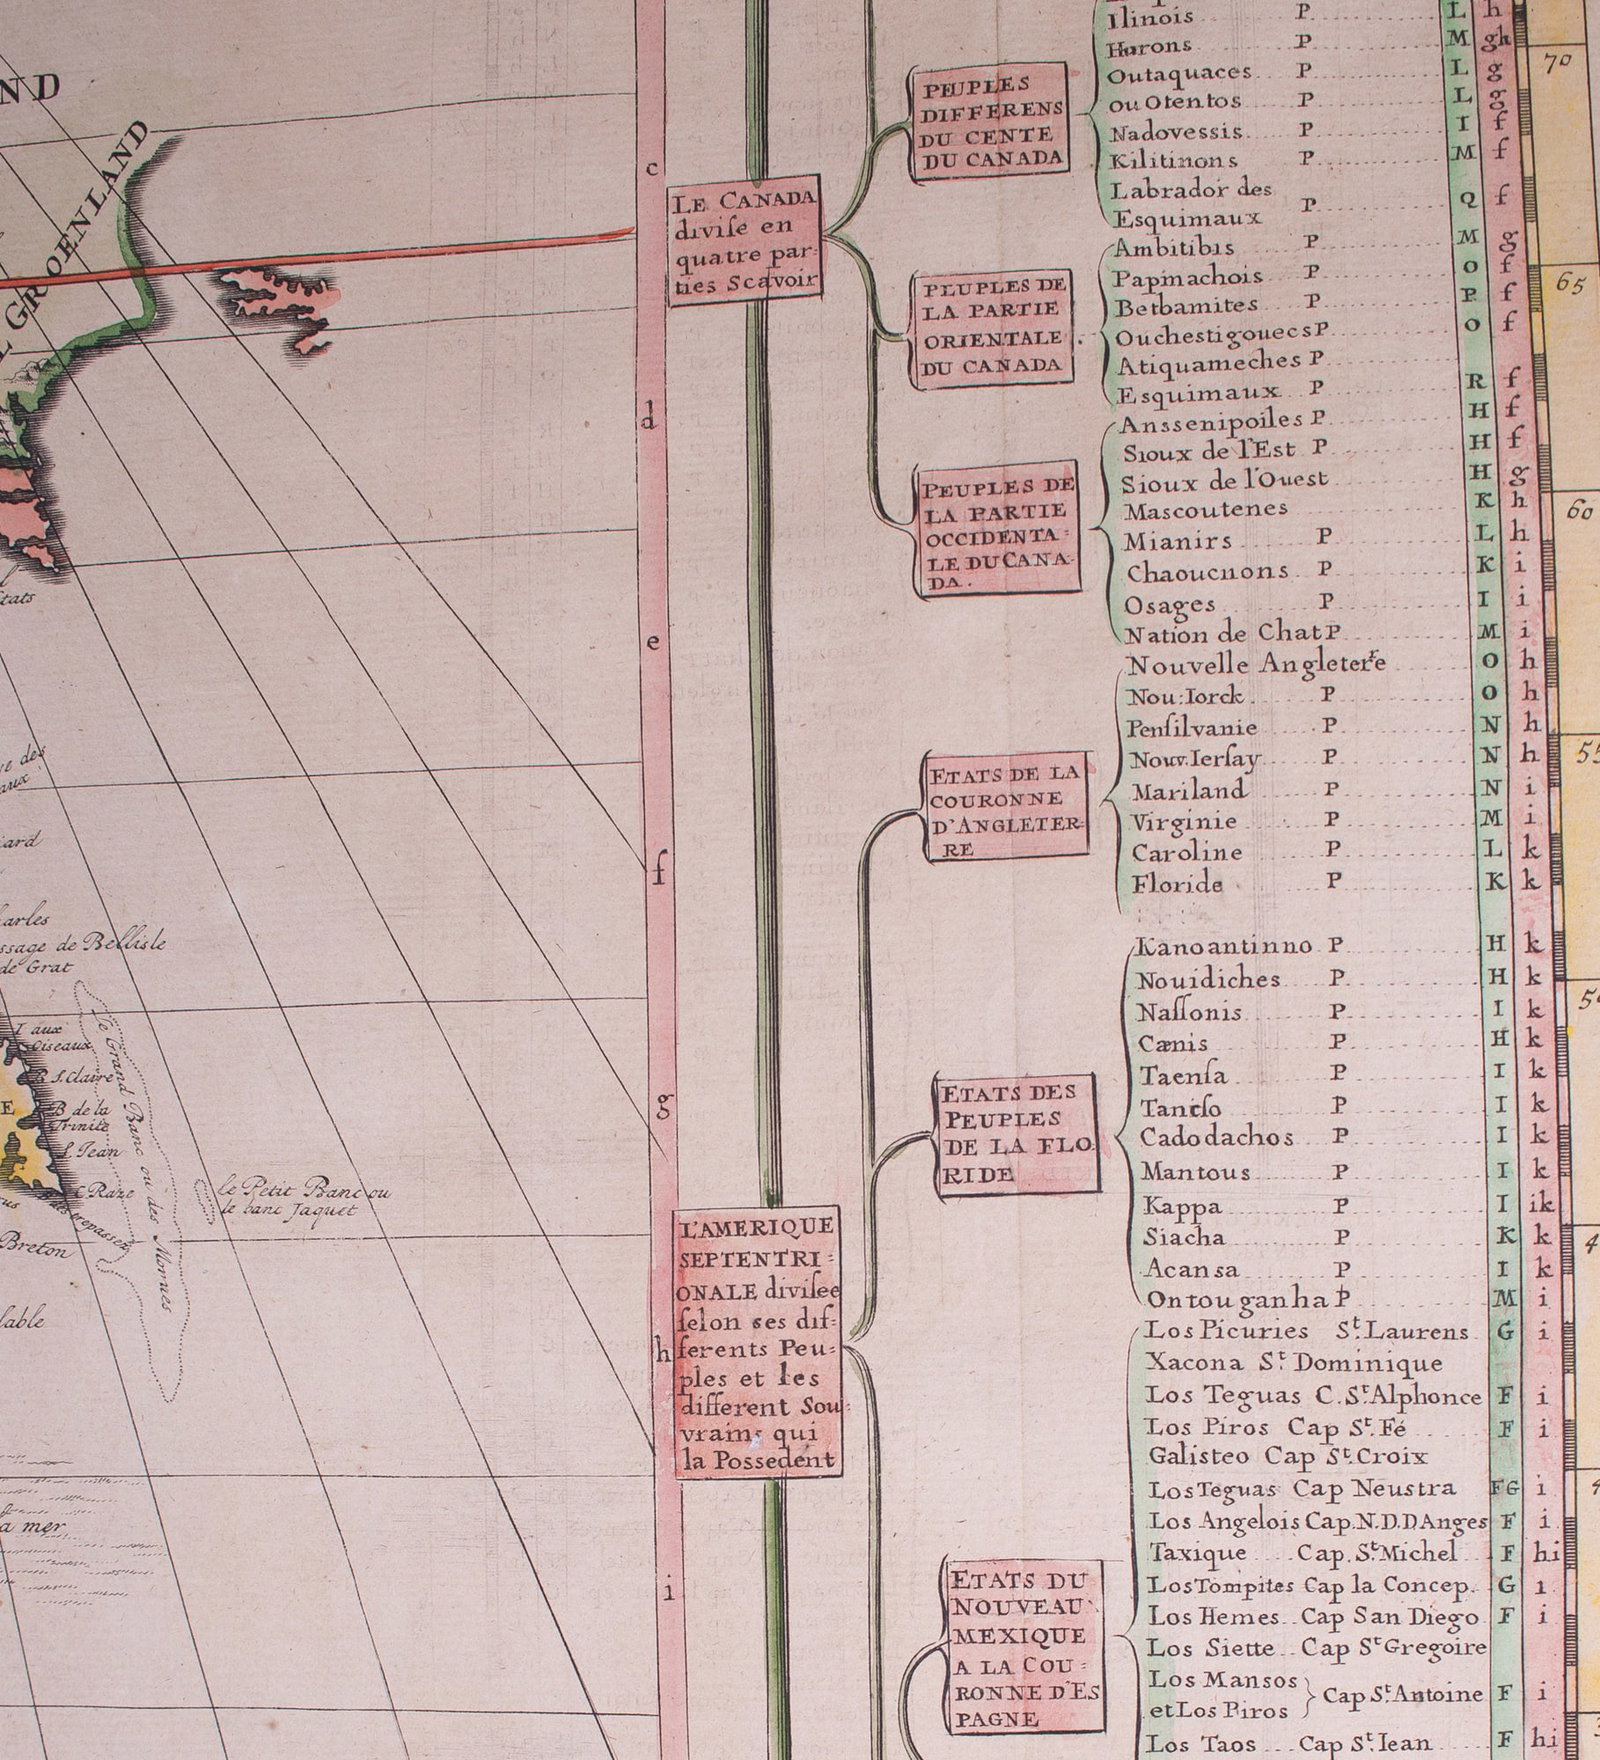 ND
GROENLAND
tats
ard
arles
ssage de Bellisle
de Grat
I aux
Oiseaux
B S. Claire
B de la
Trinite
S. Jean
C Raze
Breton
le Grand Banc ou des Mornes
le Petit Banc ou
le banc Jaquet
lable
a mer
c
d
e
f
g
h
i
LE CANADA
divise en
quatre par-
ties Scavoir
L'AMERIQUE
SEPTENTRI-
ONALE divisee
selon ses dif-
ferents Peu-
ples et les
different Sou-
vrains qui
la Possedent
PEUPLES
DIFFERENS
DU CENTE
DU CANADA
Ilinois P L h
Hurons P M gh
Outaquaces P L g
ou Otentos P L g
Nadovessis P I f
Kilitinons P M f
Labrador des
Esquimaux P Q f
PEUPLES DE
LA PARTIE
ORIENTALE
DU CANADA
Ambitibis P M g
Papinachois P O f
Betbamites P P f
Ouchestigouecs P O f
Atiquameches P
Esquimaux P R f
PEUPLES DE
LA PARTIE
OCCIDENTA-
LE DU CANA-
DA.
Anssenipoiles P H f
Sioux de l'Est P H f
Sioux de l'Ouest H g
Mascoutenes K h
Mianirs P L h
Chaoucnons P K i
Osages P I i
Nation de Chat P M i
ETATS DE LA
COURONNE
D'ANGLETER-
RE
Nouvelle Angleterre O h
Nou: Iorck P O h
Pensilvanie P N h
Nouv. Iersay P N h
Mariland P N i
Virginie P M i
Caroline P L k
Floride P K k
ETATS DES
PEUPLES
DE LA FLO
RIDE
Kanoantinno P H k
Nouidiches P H k
Nassonis P I k
Cænis P H k
Taensa P I k
Tancso P I k
Cadodachos P I k
Mantous P I k
Kappa P I ik
Siacha P K k
Acansa P I k
Ontouganha P M i
ETATS DU
NOUVEAU
MEXIQUE
A LA COU-
RONNE D'ES
PAGNE
Los Picuries St. Laurens G i
Xacona St. Dominique
Los Teguas C. St. Alphonce F i
Los Piros Cap St. Fé F i
Galisteo Cap St. Croix
Los Teguas Cap Neustra FG i
Los Angelois Cap. N.D.D Anges F i
Taxique Cap. St. Michel F hi
Los Tompites Cap la Concep. G i
Los Hemes Cap San Diego F i
Los Siette Cap St Gregoire
Los Mansos
et Los Piros Cap St. Antoine F i
Los Taos Cap St. Iean F hi
70
65
60